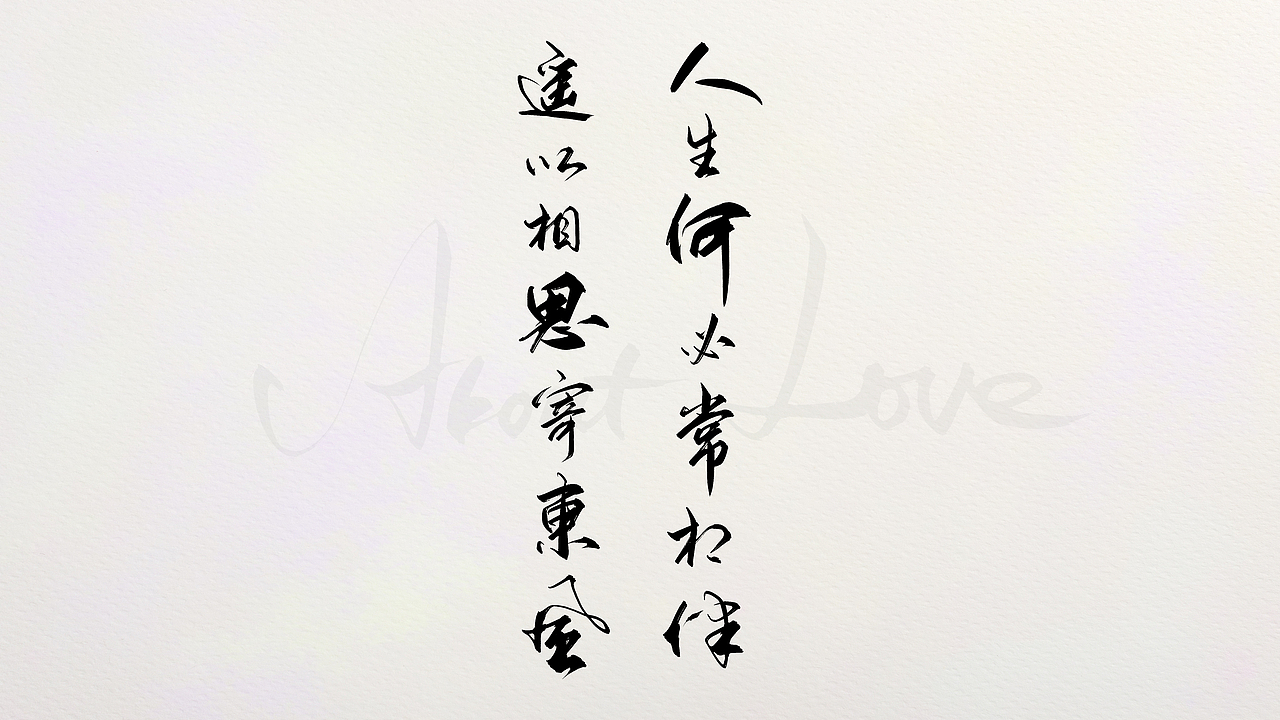 人生何必常相伴
遥以相思寄東風
About Love